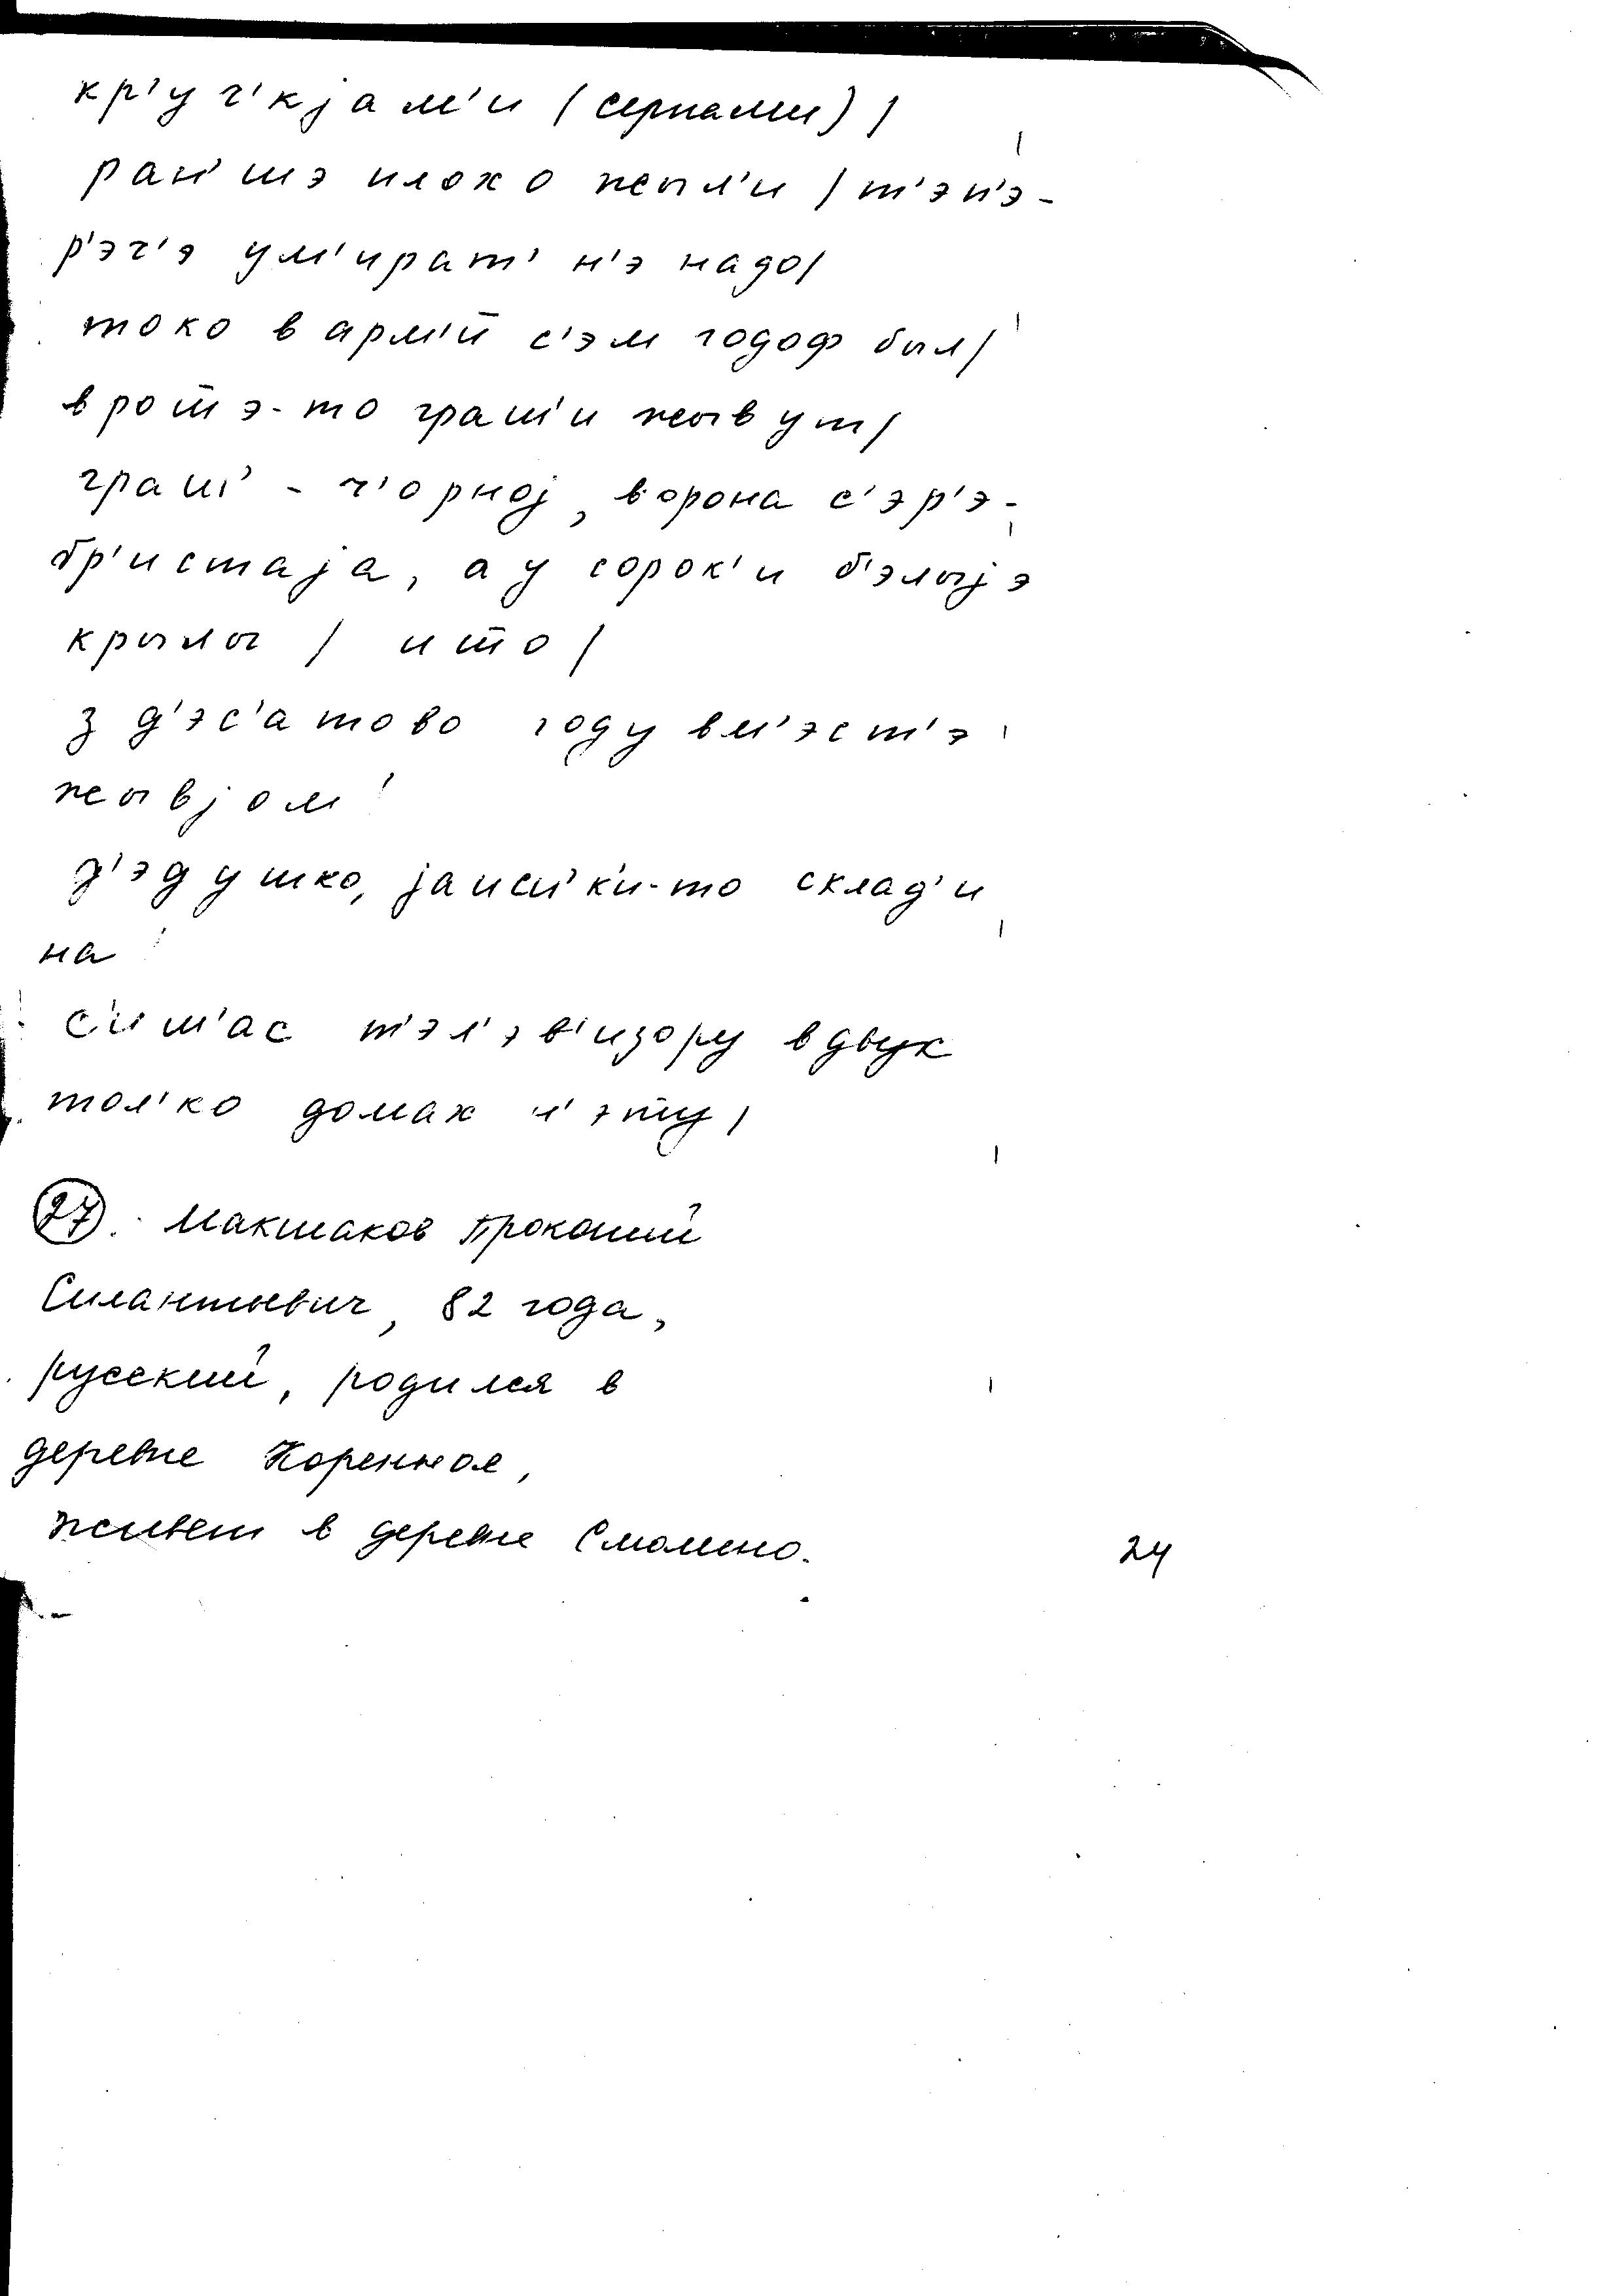 кр'уч'кjам'и (серпами) /
ран'шэ плохо жыл'и / т'эп'э-
р'эч'э ум'ират' н'э надо/
токо в арм'ий с'эм годоф был/
в рот̅э-то граш'и жывут/
граш' - ч'орноj, ворона с'эр'э-
бр'истаjа, а у сорок'и б'элыjэ
крылы / и што /
з д'эс'атово году вм'эст'э
жывjом
д'эдушко, jаиш'к'и-то склад'и
на
с'иш'ас т'эл'эв'изору в двух
тол'ко домах н'эту /
27. Макшаков Прокопий
Силантьевич, 82 года,
русский, родился в
деревне Коренное,
живет в деревне Смолино.
24